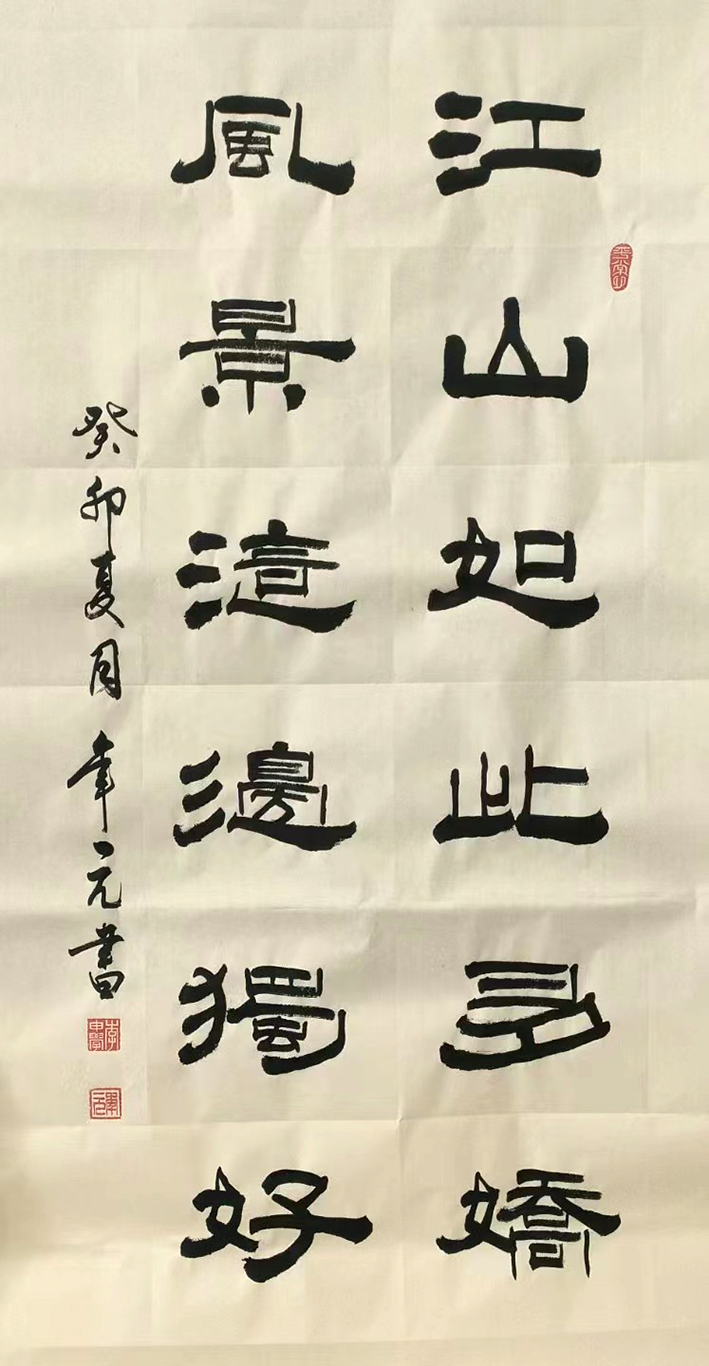 江山如此多嬌
風景這邊獨好
癸卯夏月章元書